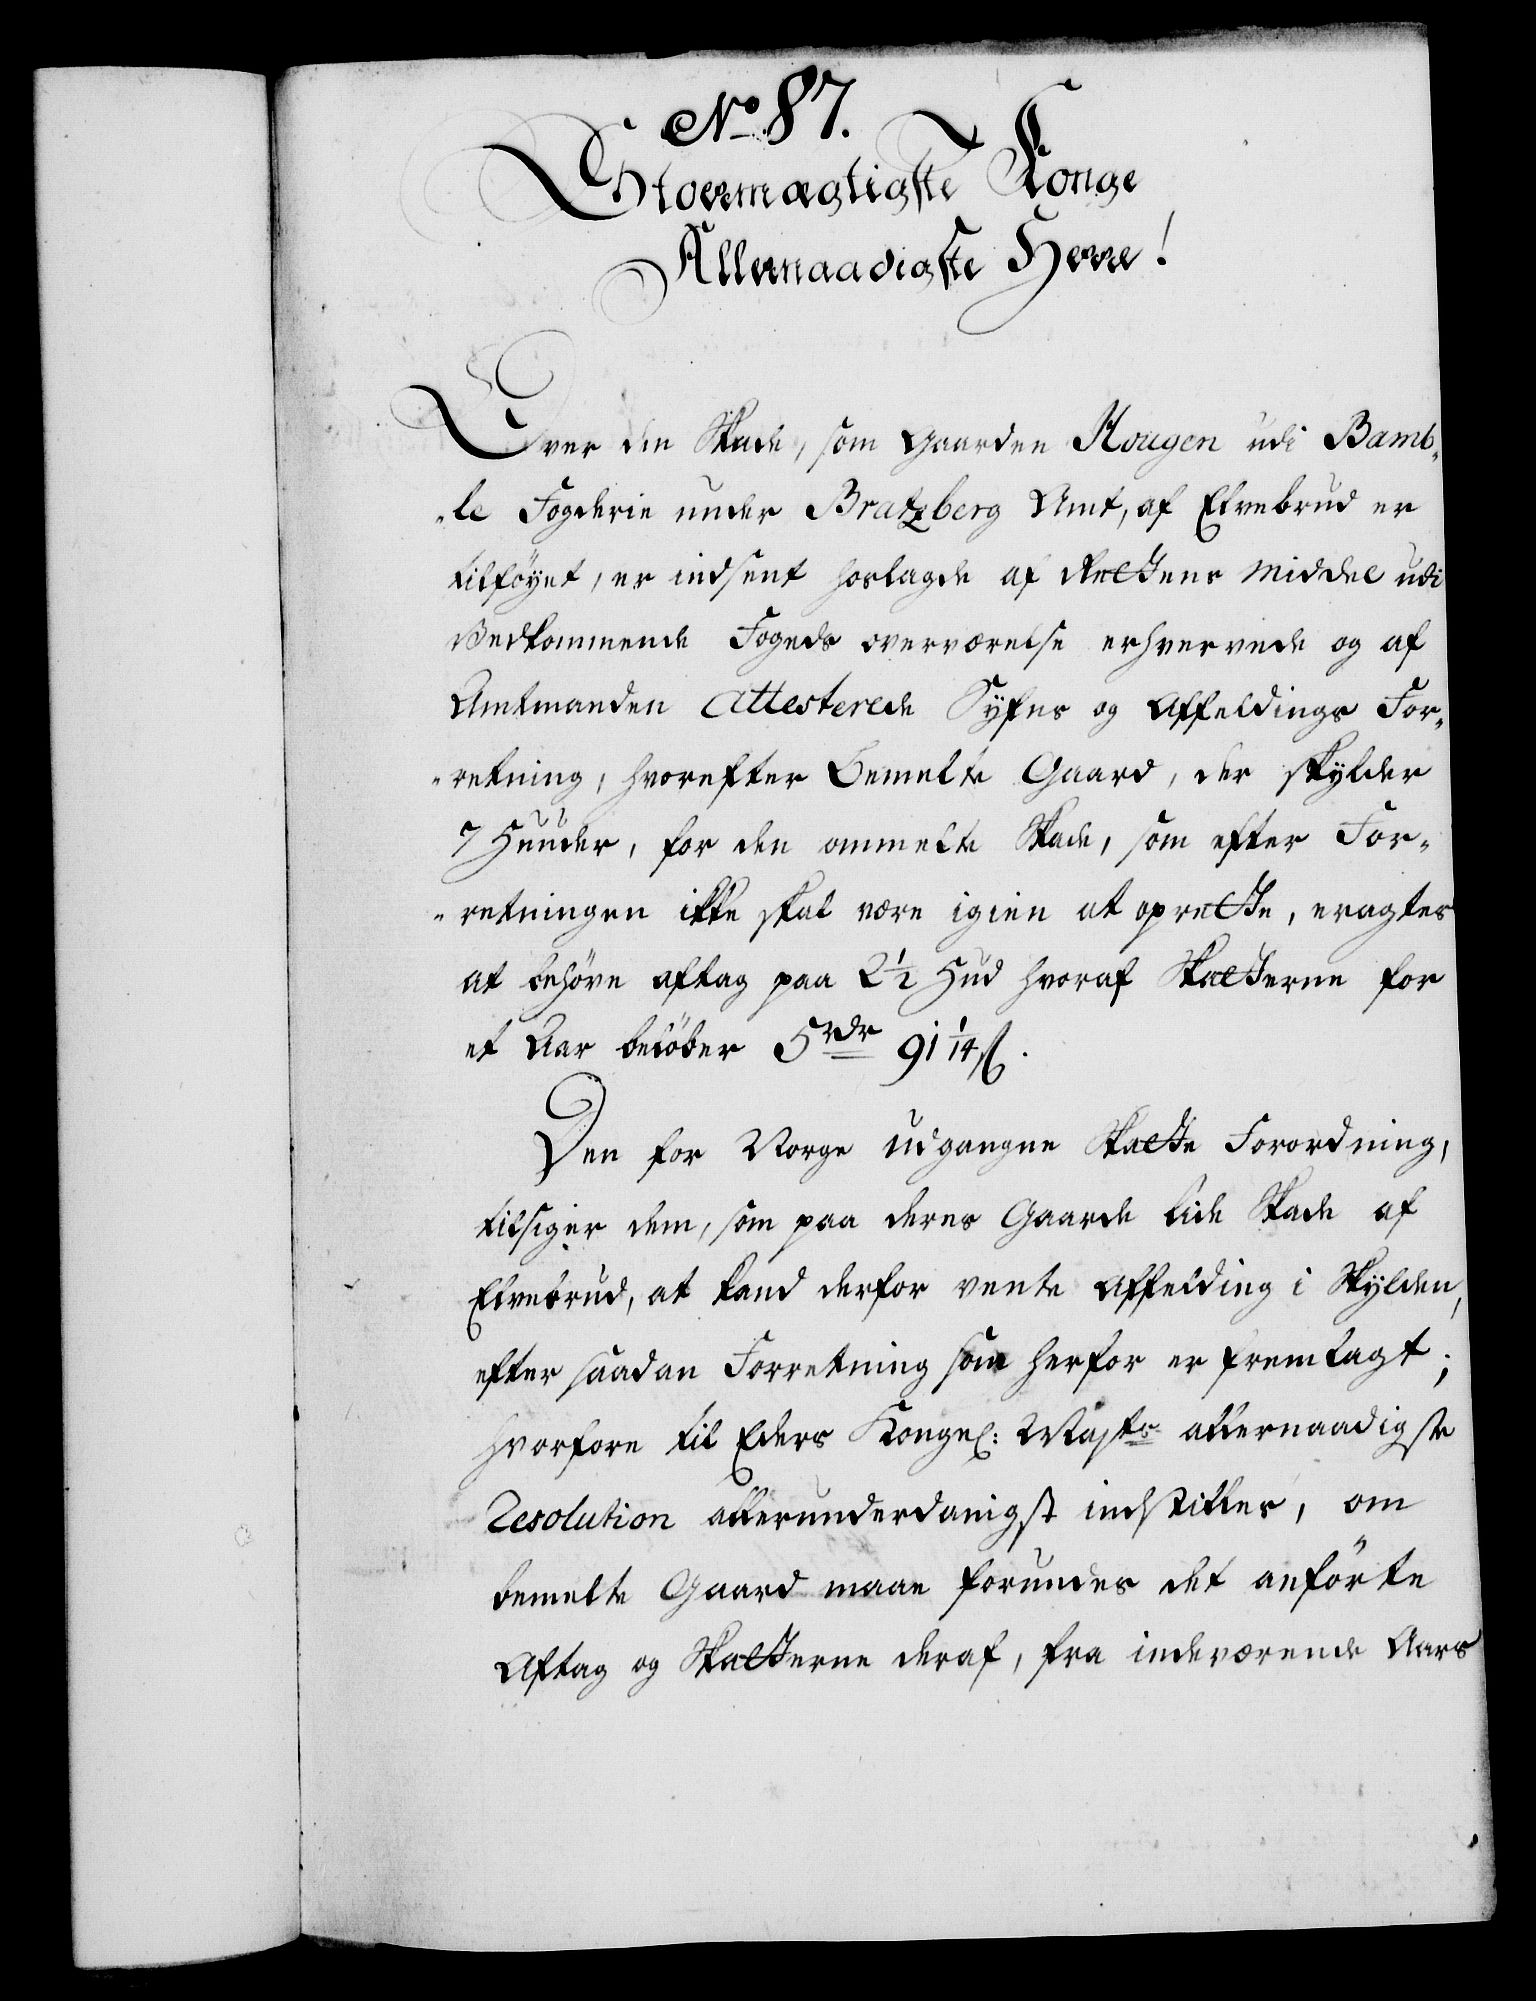 No 87.
Stormægtigste Konge
Allernaadigste Herre!
Over den Skade, som Gaarden Hougen udi Bamb„
„le Fogderie under Bratzberg Amt, af Elvebrud er
tilföyet, er indsent hoslagde af Rettens Middel udi
Vedkommende Fogeds overværelse erhvervede og af
Amtmanden Attesterede Syfns og Affeldings For„
„retning, hvorefter Bemelte Gaard, der skylder
7 Huuder, for den ommelte Skade, som efter For„
„retningen ikke skal være igien at oprette, eragtes
at behöve aftag paa 2½ Hud hvoraf Skatterne for
et Aar belöber 5 rdr 91 1/14 ß.
Den for Norge udgangne Skatte Forordning,
tilsiger dem, som paa deres Gaarde lide Skade af
Elvebrud, at kand derfor vente Affelding i Skylden,
efter saadan Forretning som herfor er fremlagt;
hvorfore til Eders Kongel: Majts allernaadigste
Resolution allerunderdanigst indstilles, om
bemelte Gaard maae forundes det anförte
Aftag og Skatterne deraf, fra indeværende Aars